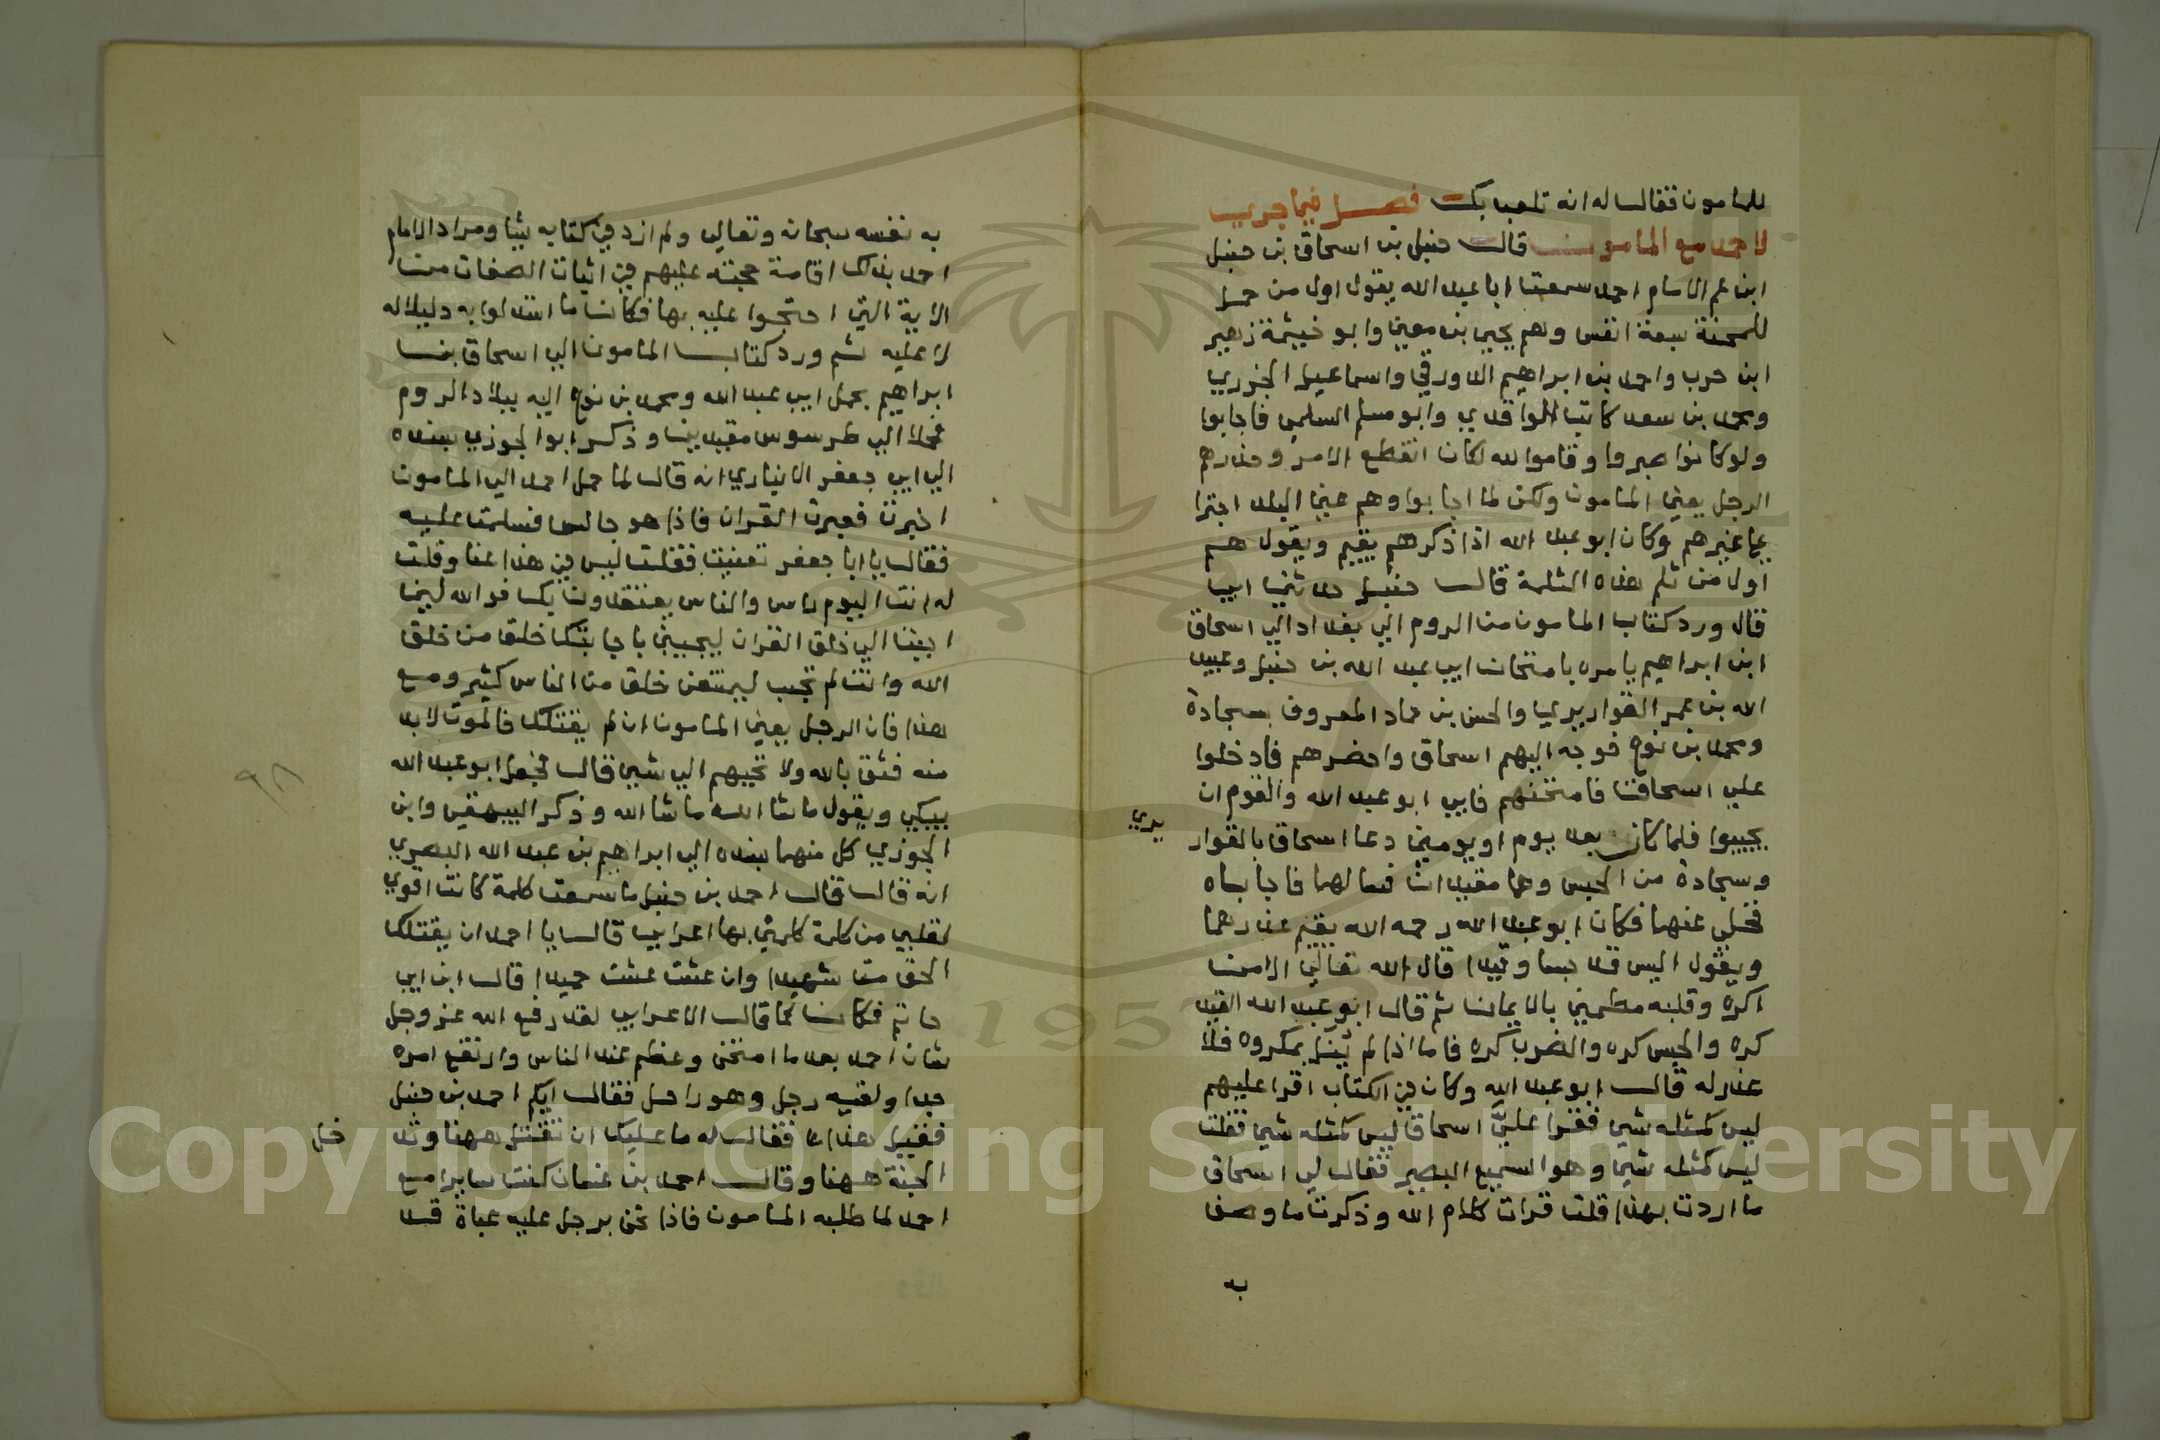 للمامون فقال له انه تلعب بك فصل فيما جري
لاحمد مع المامون قال حنبل بن اسحاق بن حنبل
ابن عم الامام احمد سمعت ابا عبد الله يقول اول من حمل
للمحنة سبعة انفس وهم يحيي بن معين وابو خيثمة زهير
ابن حرب واحمد بن ابراهيم الدورقي واسماعيل الجزري
ومحمد بن سعد كاتب الواقدي وابو مسلم السلمي فاجابوا
ولو كانوا صبروا وقاموا لله لكان انقطع الامر وحذرهم
الرجل يعني المامون ولكن لما اجابوا وهم عين البلد اجترا
علي غيرهم وكان ابو عبد الله اذا ذكرهم يغتم ويقول هم
اول من ثلم هذه الثلمة قال حنبل حدثني ابي
قال ورد كتاب المامون من الروم الي بغداد الي اسحاق
ابن ابراهيم يامره بامتحان ابي عبد الله بن حنبل وعبيد
الله بن عمر القواريري والحسن بن حماد المعروف بسجادة
ومحمد بن نوح فوجه اليهم اسحاق واحضرهم فادخلوا
علي اسحاق فامتحنهم فابي ابو عبد الله والقوم ان
يجيبوا فلما كان بعد يوم او يومين دعا اسحاق بالقوار
يري
وسجادة من الحبس وهما مقيدان فسالهما فاجاباه
فخلي عنهما فكان ابو عبد الله رحمه الله يقيم عذرهما
ويقول اليس قد حبسا وقيدا قال الله تعالي الا من
اكره وقلبه مطمين بالايمان ثم قال ابو عبد الله القيد
كره والحبس كره والضرب كره فاما اذا لم ينل بمكروه فلا
عذر له قال ابو عبد الله وكان في الكتاب اقرا عليهم
ليس كمثله شي فقرا علي اسحاق ليس كمثله شي فقلت
ليس كمثله شي وهو السميع البصير فقال لي اسحاق
ما اردت بهذا قلت قرات كلام الله وذكرت ما وصف
به
به نفسه سبحانه وتعالي ولم ازد في كتابه شيا ومراد الامام
احمد بذلك اقامة حجته عليهم في اثبات الصفات من
الاية التي احتجوا عليه بها فكان ما استدلوا به دليلا له
لا عليه ثم ورد كتاب المامون الي اسحاق بن
ابراهيم بحمل ابي عبد الله ومحمد بن نوح اليه ببلاد الروم
فحملا الي طرسوس مقيدين وذكر ابو الجوزي بسنده
الي ابي جعفر الانباري انه قال لما حمل احمد الي المامون
اخبرت فعبرت الفرات فاذا هو جالس فسلمت عليه
فقال يا ابا جعفر تعنيت فقلت ليس في هذا عنا وقلت
له انت اليوم راس والناس يقتدون بك فوالله لين
اجبت الي خلق القران ليجيبن باجابتك خلق من خلق
الله وان انت لم تجب ليمتنعن خلق من الناس كثير ومع
هذا فان الرجل يعني المامون ان لم يقتلك فالموت لا بد
منه فثق بالله ولا تجيبهم الي شي قال فجعل ابو عبد الله
يبكي ويقول ما شا الله ما شا الله وذكر البيهقي وابن
الجوزي كل منهما بسنده الي ابراهيم بن عبد الله البصري
انه قال قال احمد بن حنبل ما سمعت كلمة كانت اقوي
لقلبي من كلمة كلمني بها اعرابي قال يا احمد ان يقتلك
الحق مت شهيدا وان عشت عشت حميدا قال ابن ابي
حاتم فكان كما قال الاعرابي لقد رفع الله عز وجل
شان احمد بعد ما امتحن وعظم عند الناس وارتفع امره
جدا ولقيه رجل وهو راحل فقال ايكم احمد بن حنبل
فقيل هذا فقال له ما عليك ان تقتل ههنا وتد
خل
الجنة ههنا وقال احمد بن غسان كنت سايرا مع
احمد لما طلبه المامون فاذا نحن برجل عليه عباة قد
٩٨
Copyright © King Saud University
1957